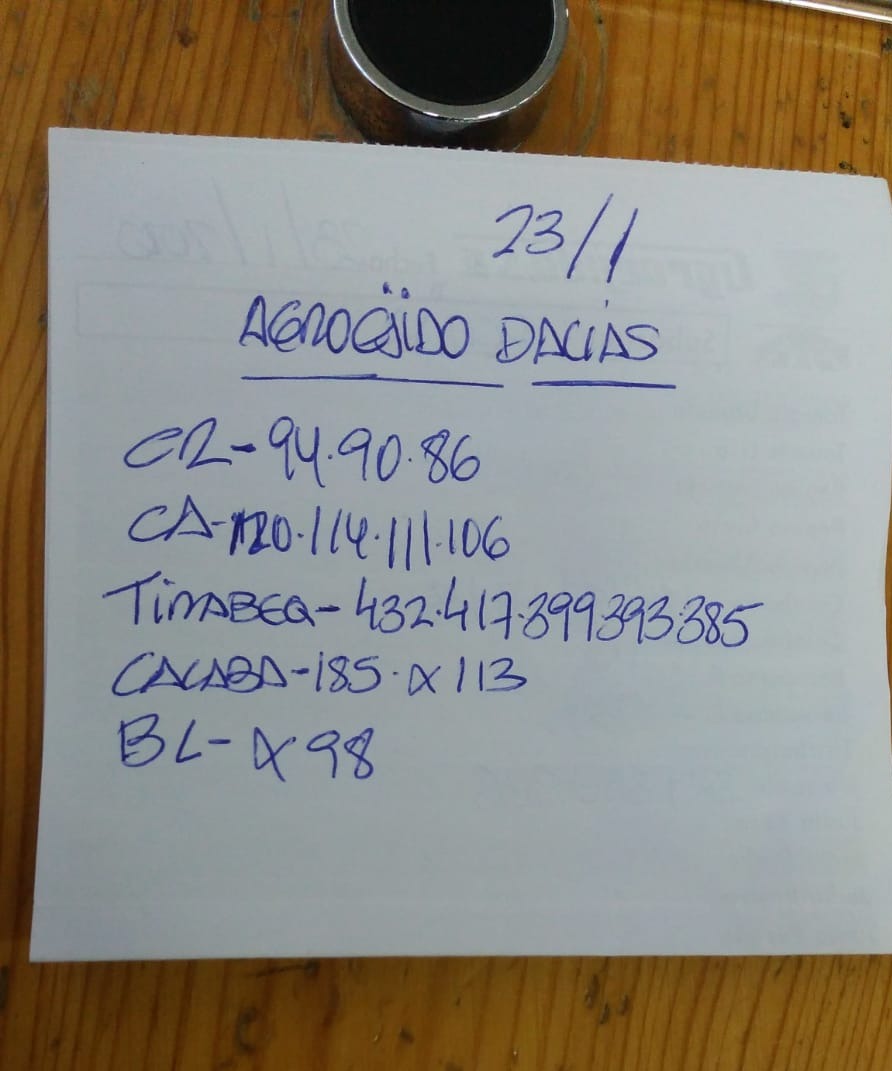 23/1
AGROEJIDO DACIAS
CR-94.90.86
CA-120.114.111.106
TIRABEQ-432.417.399393.385
CALABA-185.X113
BL-X98